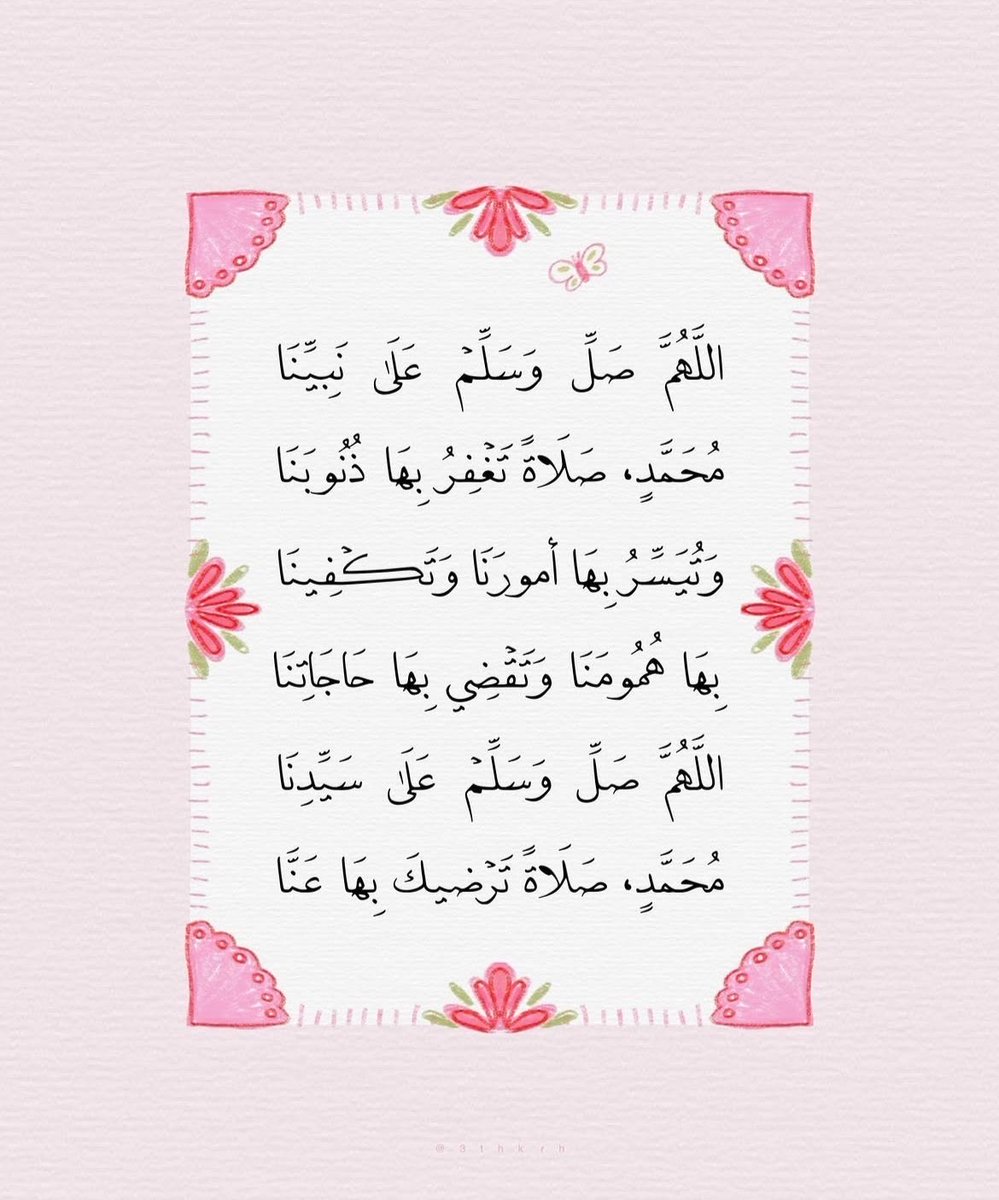 اللَّهُمَّ صَلِّ وَسَلِّمْ عَلَىٰ نَبِيِّنَا
مُحَمَّدٍ، صَلَاةً تَغْفِرُ بِهَا ذُنُوبَنَا
وَتُيَسِّرُ بِهَا أمورَنَا وَتَكْفِينَا
بِهَا هُمُومَنَا وَتَقْضِي بِهَا حَاجَاتِنَا
اللَّهُمَّ صَلِّ وَسَلِّمْ عَلَىٰ سَيِّدِنَا
مُحَمَّدٍ، صَلَاةً تَرْضيكَ بِهَا عَنَّا
@3thkrh